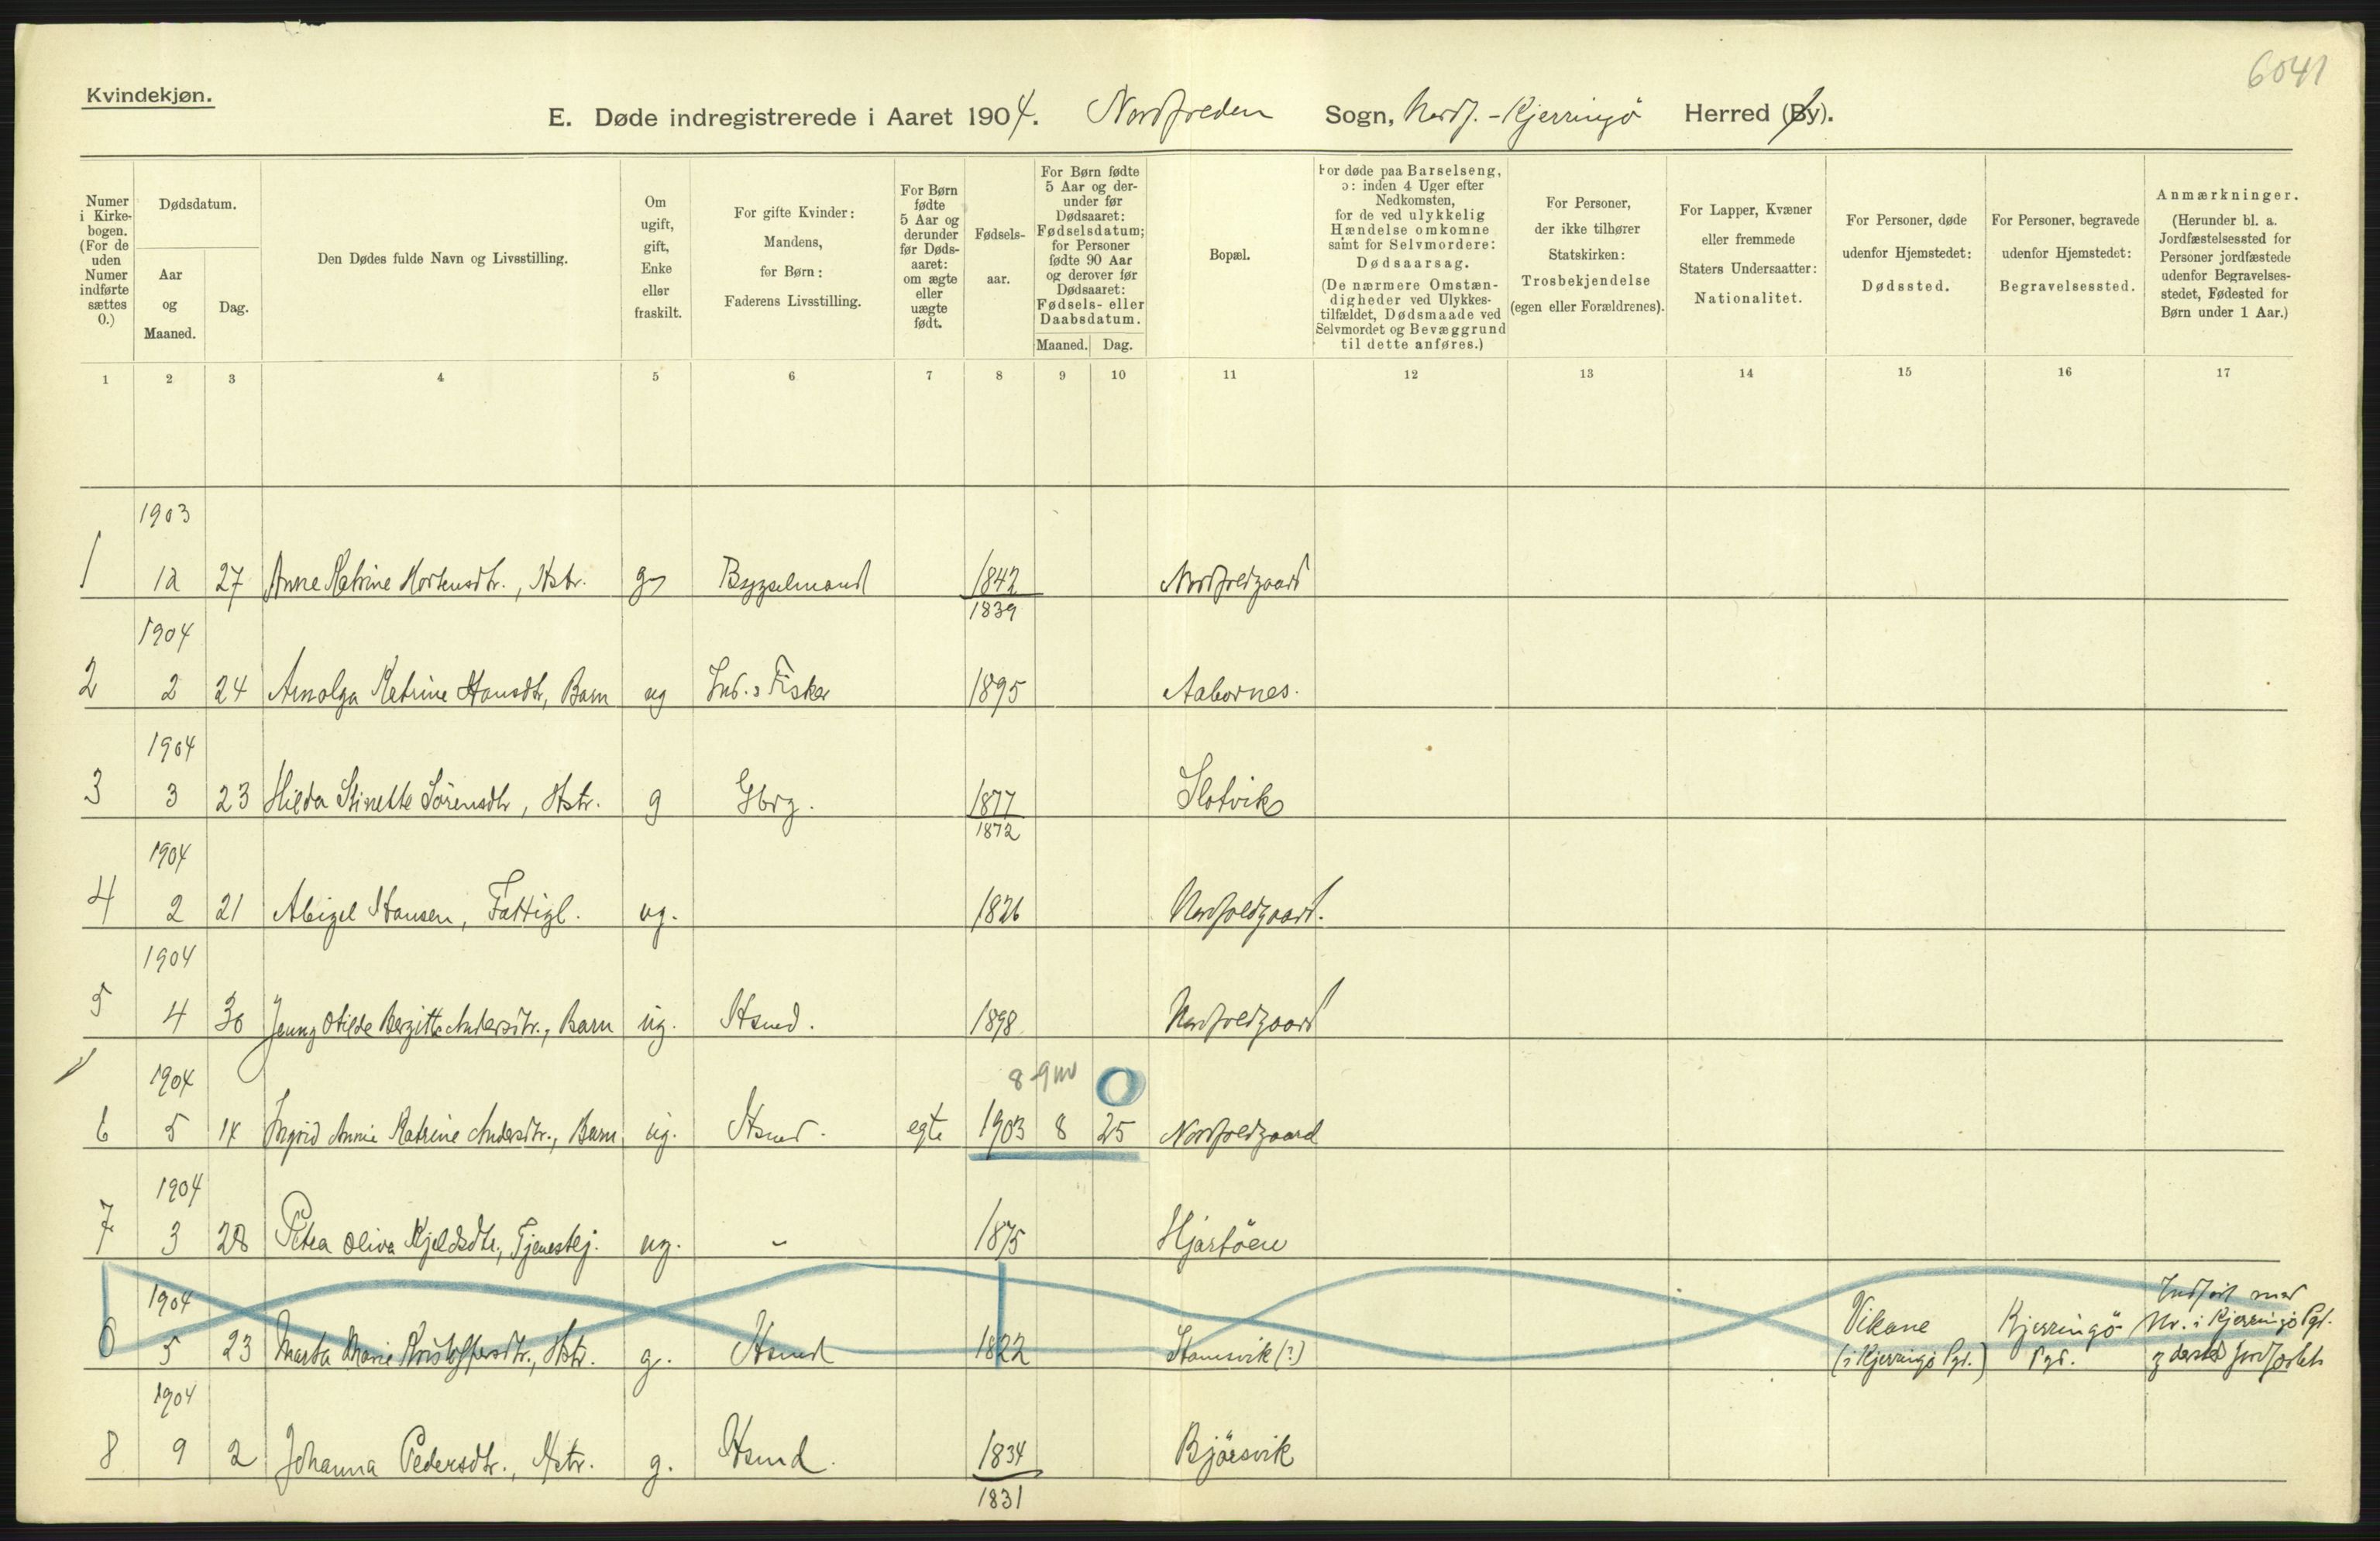 6041
Kvindekjøn.
E. Døde indregistrerede i Aaret 1904. Nordfolden Sogn, Nordf. - Kjerringö Herred (By).
Numer i Kirkebogen. (For de uden Numer indførte sættes 0.)
Dødsdatum.
Aar og Maaned.
Dag.
Den Dødes fulde Navn og Livsstilling.
Om ugift, gift, Enke eller fraskilt.
For gifte Kvinder: Mandens, for Børn: Faderens Livsstilling.
For Børn fødte 5 Aar og derunder før Dødsaaret: om ægte eller uægte født.
Fødselsaar.
For Børn fødte 5 Aar og derunder før Dødsaaret: Fødselsdatum; for Personer fødte 90 Aar og derover før Dødsaaret: Fødsels- eller Daabsdatum.
Maaned. Dag.
Bopæl.
For døde paa Barselseng, ɔ: inden 4 Uger efter Nedkomsten, for de ved ulykkelig Hændelse omkomne samt for Selvmordere: Dødsaarsag. (De nærmere Omstændigheder ved Ulykkestilfældet, Dødsmaade ved Selvmordet og Bevæggrund til dette anføres.)
For Personer, der ikke tilhører Statskirken: Trosbekjendelse (egen eller Forældrenes).
For Lapper, Kvæner eller fremmede Staters Undersaatter: Nationalitet.
For Personer, døde udenfor Hjemstedet: Dødssted.
For Personer, begravede udenfor Hjemstedet: Begravelsessted.
Anmærkninger. (Herunder bl. a. Jordfæstelsessted for Personer jordfæstede udenfor Begravelsesstedet, Fødested for Børn under 1 Aar.)
1 2 3 4 5 6 7 8 9 10 11 12 13 14 15 16 17
1903
1 12 27 Anne Katrine Mortensdtr., Hstr. g Bygselmand 1842 Nordfoldgaard
1839
1904
2 2 24 Arnolga Katrine Hansdtr, Barn ug Ind. & Fisker 1895 Aabornes.
1904
3 3 23 Hilda Stinette Sörensdtr, Hstr. g Gbrg. 1877 Slotvik
1872
1904
4 2 21 Abigel Hansen, Fattigl. ug. 1826 Nordfoldgaard.
1904
5 4 30 Jenny Otilde Bergitte Andersdtr., Barn ug. Hsmd. 1898 Nordfoldgaard
1904 8-9 m 0
6 5 14 Ingrid Annie Katrine Andersdtr., Barn ug. Hsmd. egte 1903 8 25 Nordfoldgaard
1904
7 3 28 Petea Oliva Kjeldsdtr., Tjenestej. ug. - 1875 Hjartöen
1904 Indført med
0 5 23 Marta Marie Kristoffersdtr., Hstr. g. Hsmd 1822 Stamsvik (?) Vikane (i Kjerringö Pgd.) Kjerringö Pgd. Nr. i Kjerringö Pgd.
1904
8 9 2 Johanna Pedersdtr., Hstr. g. Hsmd. 1834 Bjørsvik
1831